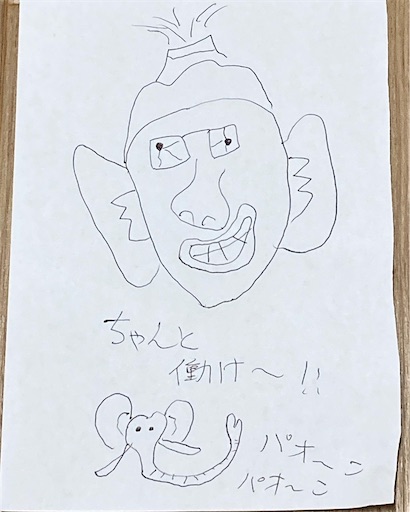 ちゃんと
働け〜!!
パオ〜こ
パオ〜こ